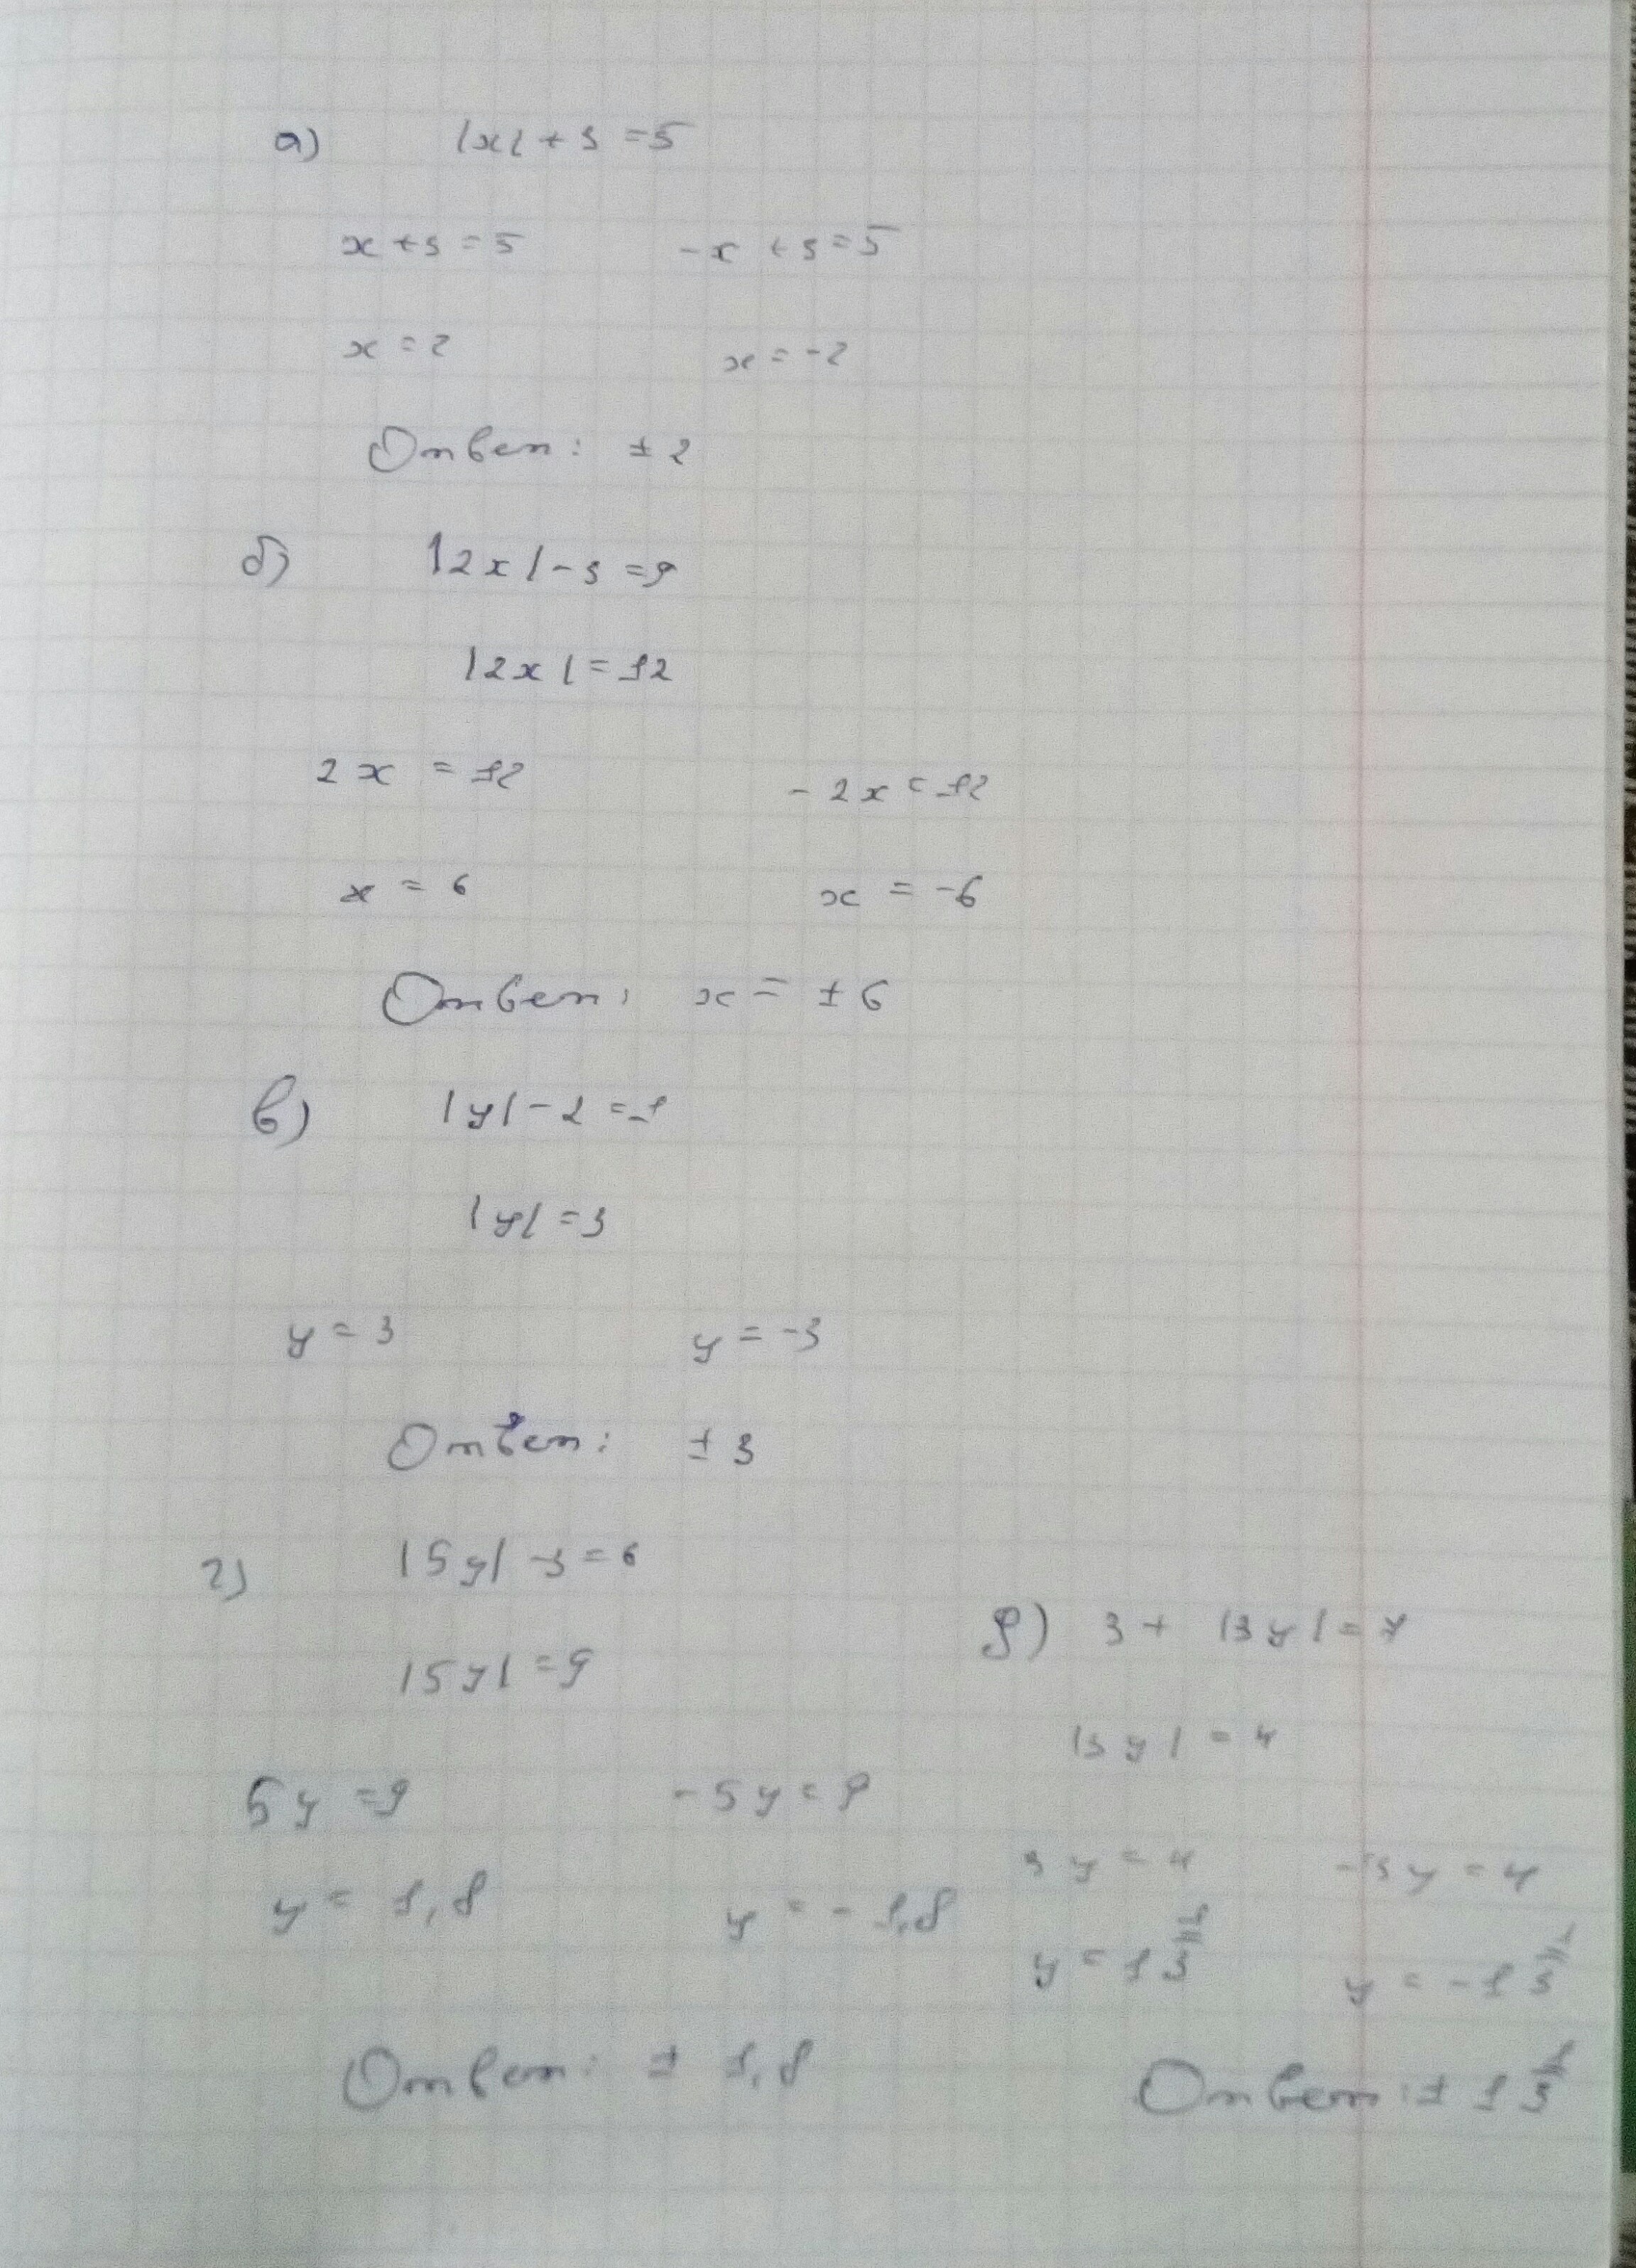 а) |x| + 3 = 5
x + 3 = 5 -x + 3 = 5
x = 2 x = -2
Ответ: ± 2
б) |2x| - 3 = 9
|2x| = 12
2x = 12 -2x = 12
x = 6 x = -6
Ответ: x = ± 6
в) |y| - 2 = 1
|y| = 3
y = 3 y = -3
Ответ: ± 3
г) |5y| - 3 = 6
|5y| = 9
5y = 9 -5y = 9
y = 1,8 y = - 1,8
Ответ: ± 1,8
д) 3 + |3y| = 7
|3y| = 4
3y = 4 -3y = 4
y = 1 1/3 y = - 1 1/3
Ответ: ± 1 1/3